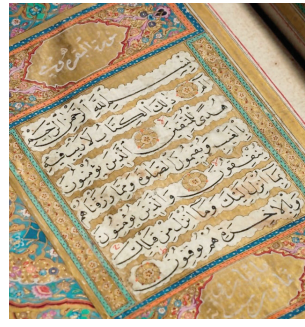 بِسْمِ اللَّهِ الرَّحْمَٰنِ الرَّحِيمِ
الم ذَلِكَ الْكِتَابُ لَا رَيْبَ فِيهِ
هُدًى لِلْمُتَّقِينَ الَّذِينَ يُؤْمِنُونَ
بِالْغَيْبِ وَيُقِيمُونَ الصَّلٰوةَ وَمِمَّا رَزَقْنَاهُمْ
يُنْفِقُونَ وَالَّذِينَ يُؤْمِنُونَ
بِمَا أُنْزِلَ إِلَيْكَ وَمَا أُنْزِلَ مِنْ قَبْلِكَ
وَبِالْآخِرَةِ هُمْ يُوقِنُونَ